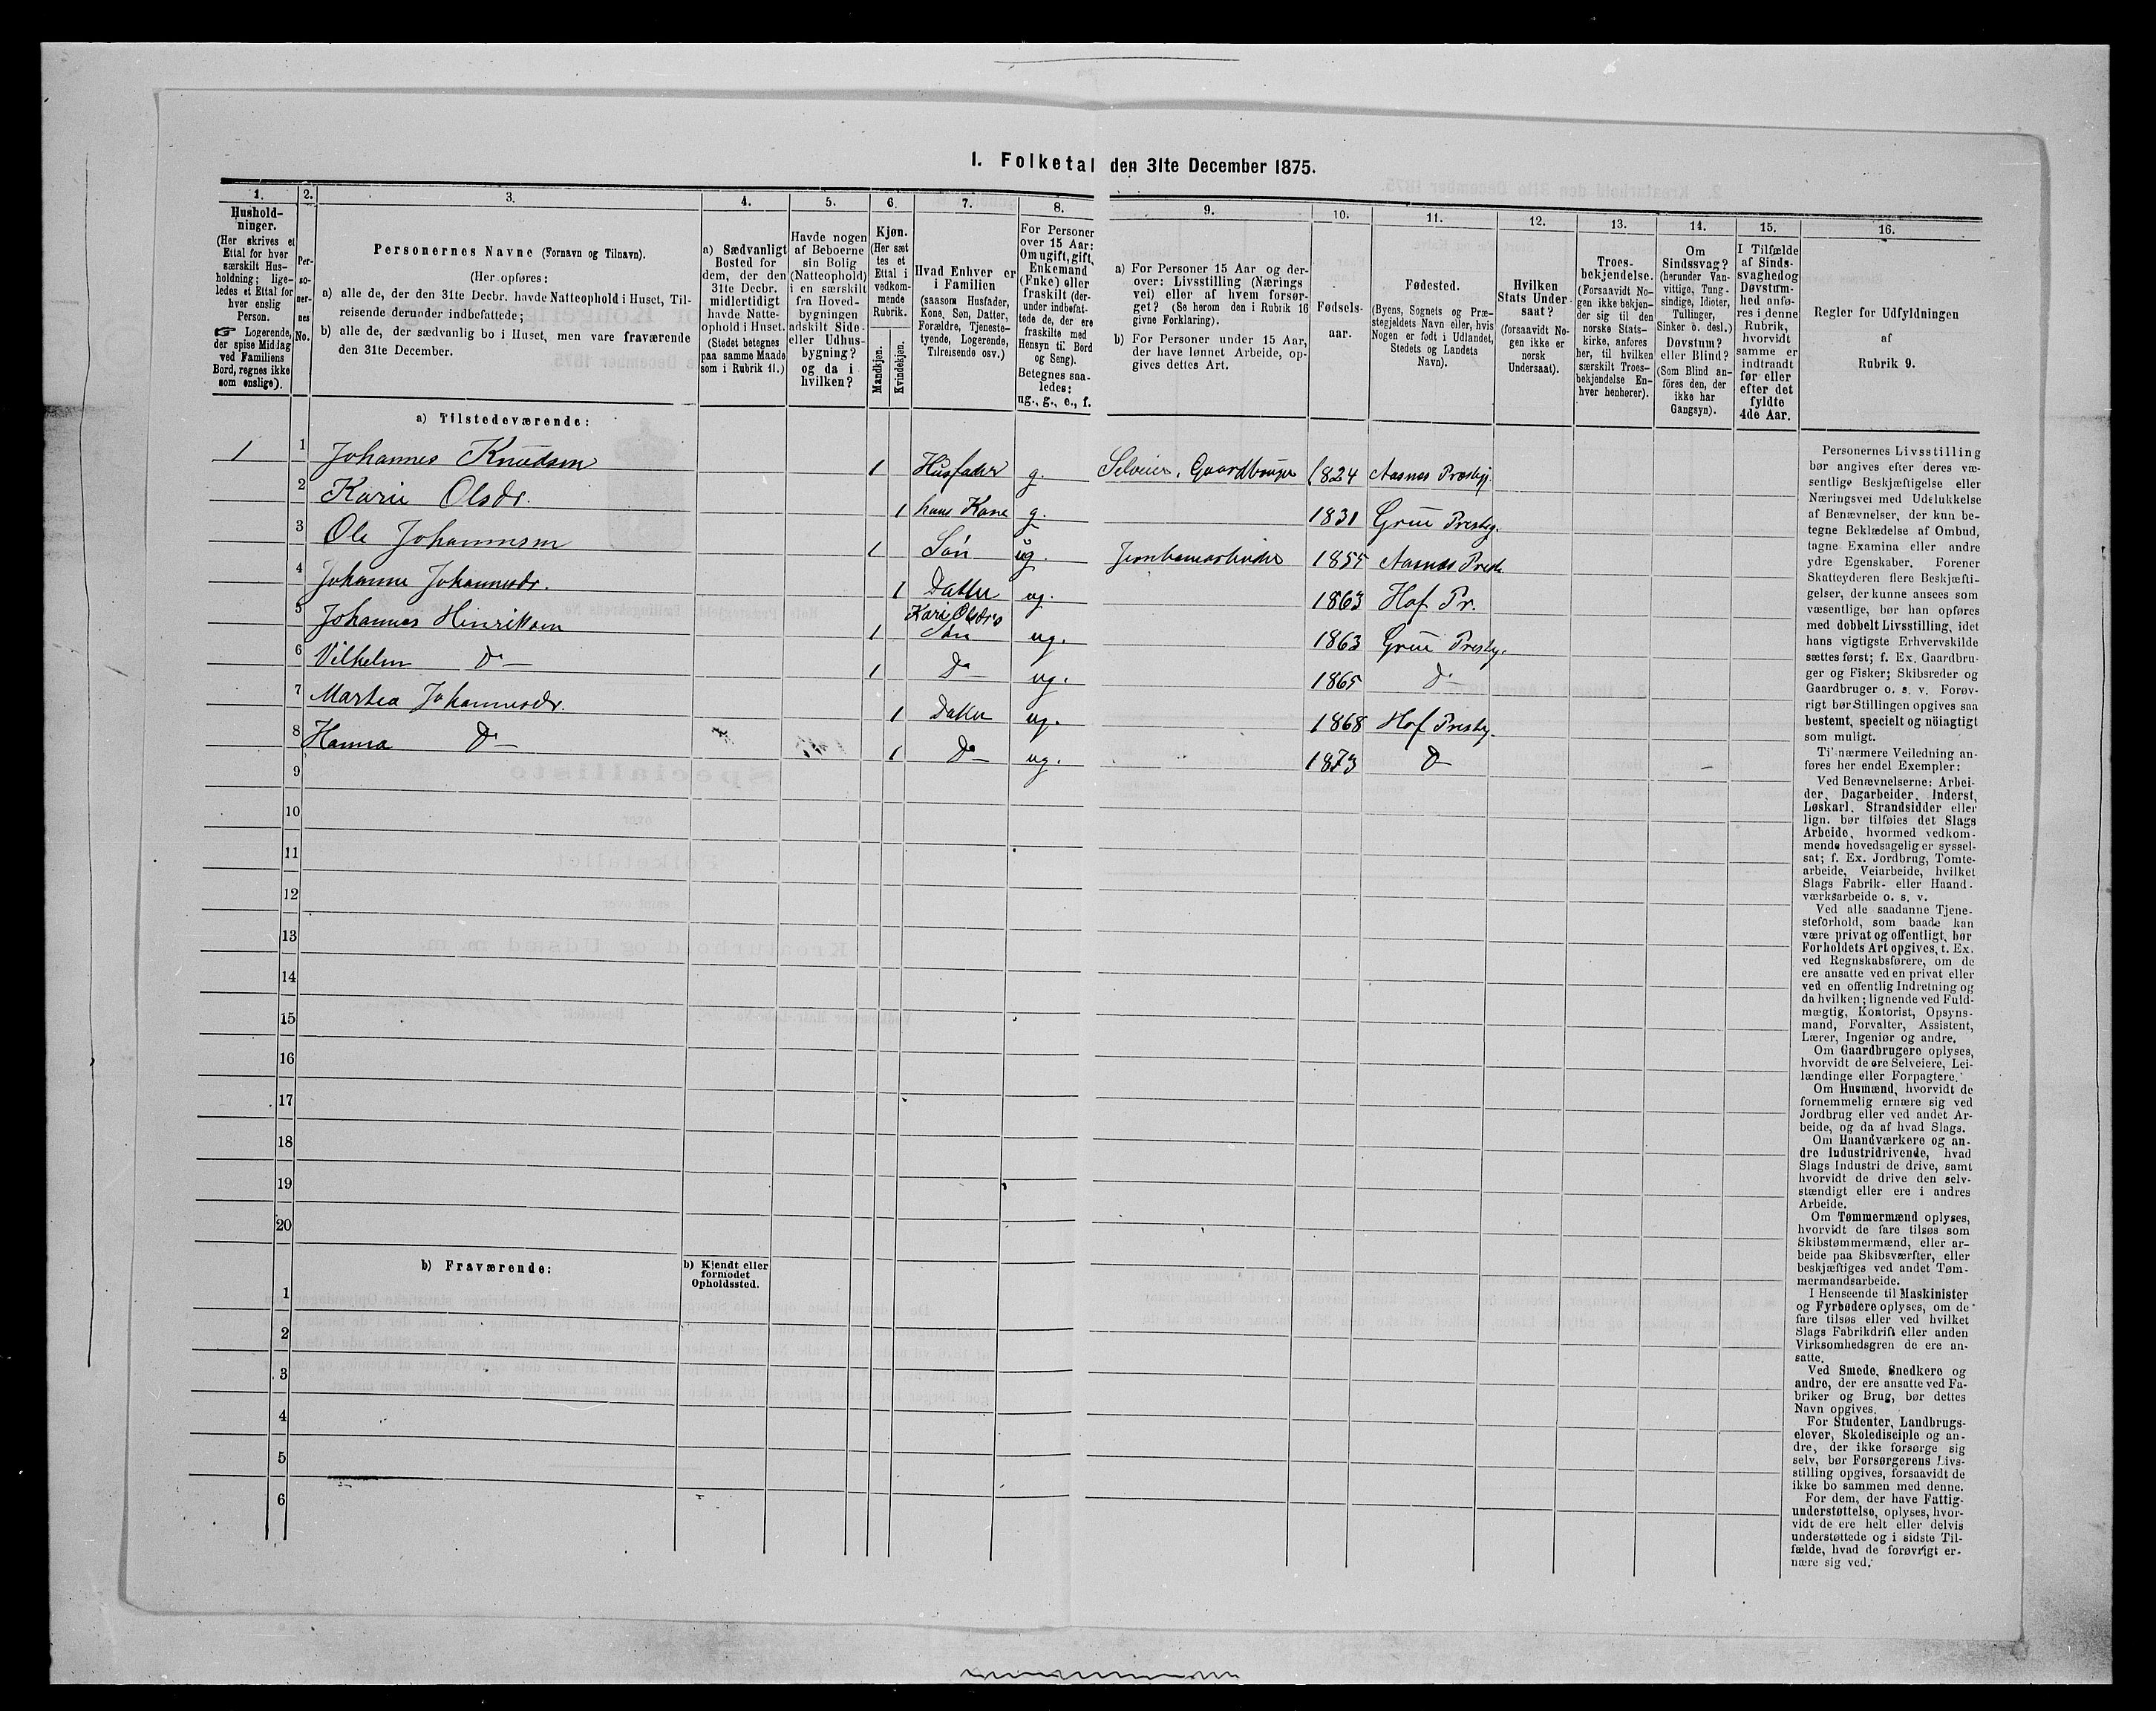 1. Folketal den 31te December 1875.
1. 2. 3. 4. 5. 6. 7. 8. 9. 10. 11. 12. 13. 14. 15. 16.
Hushold-
ninger.
(Her skrives et
Ettal for hver
særskilt Hus-
holdning; lige-
ledes et Ettal for
hver enslig
Person.
☞ Logerende,
der spise Middag
ved Familiens
Bord, regnes ikke
som enslige).
Per-
so-
ner-
nes
No.
Personernes Navne (Fornavn og Tilnavn).
(Her opføres:
a) alle de, der den 31te Decbr. havde Natteophold i Huset, Til-
reisende derunder indbefattede;
b) alle de, der sædvanlig bo i Huset, men vare fraværende
den 31te December.
a) Sædvanligt
Bosted for
dem, der den
31te Decbr.
midlertidigt
havde Natte-
ophold i Huset.
(Stedet betegnes
paa samme Maade
som i Rubrik 11.)
Havde nogen
af Beboerne
sin Bolig
(Natteophold)
i en særskilt
fra Hoved-
bygningen
adskilt Side-
eller Udhus-
bygning?
og da i
hvilken?
Kjøn.
(Her sæt
tes et
Ettal i
vedkom-
mende
Rubrik.
Mandkjøn.
Kvindekjøn.
Hvad Enhver er
i Familien
(saasom Husfader,
Kone, Søn, Datter,
Forældre, Tjeneste-
tyende, Logerende,
Tilreisende osv.)
For Personer
over 15 Aar:
Om ugift, gift,
Enkemand
(Enke) eller
fraskilt (der-
under indbefat-
tede de, der ere
fraskilte med
Hensyn til Bord
og Seng).
Betegnes saa-
ledes:
ug., g., e., f.
a) For Personer 15 Aar og der-
over: Livsstilling (Nærings
vei) eller af hvem forsør-
get? (Se herom den i Rubrik 16
givne Forklaring).
b) For Personer under 15 Aar,
der have lønnet Arbeide, op-
gives dettes Art.
Fødsels-
aar.
Fødested.
(Byens, Sognets og Præ-
stegjeldets Navn eller, hvis
Nogen er født i Udlandet,
Stedets og Landets
Navn).
Hvilken
Stats Under-
saat?
(forsaavidt No-
gen ikke er
norsk
Undersaat).
Troes-
bekjendelse.
(Forsaavidt No-
gen ikke bekjen-
der sig til den
norske Stats-
kirke, anføres
her, til hvilken
særskilt Troes-
bekjendelse En-
hver henhører).
Om
Sindssvag?
(herunder Van-
vittige, Tung-
sindige, Idioter,
Tullinger,
Sinker o. desl.)
Døvstum?
eller Blind?
(Som Blind an-
føres den, der
ikke har
Gangsyn).
I Tilfælde
af Sinds-
svaghed og
Døvstum-
hed anfø-
res i denne
Rubrik,
hvorvidt
samme er
indtraadt
før eller
efter det
fyldte
4de Aar.
Regler for Udfyldningen
af
Rubrik 9.
a) Tilstedeværende:
1 1 Johannes Knudsen 1 Husfader g. Selveier, Gaardbruger 1824 Aasnes Præstegj.
2 Karie Olsdr. 1 hans Kone g. 1831 Grue Prestg.
3 Ole Johannesen 1 Søn ug. Jernbanearbeider 1855 Aasnes Prest.
4 Johanne Johannesdr. 1 Datter ug. 1863 Hof Pr.
5 Johannes Henriksen 1 Kari Olsdrs Søn ug. 1863 Grue Prestg.
6 Vilhelm Do — 1 Do — ug. 1865 Do —
7 Marthea Johannesdr. 1 Datter ug. 1868 Hof Prestg.
8 Hanna Do — 1 Do — ug. 1873 Do —
9
10
11
12
13
14
15
16
17
18
19
20
b) Fraværende:
b) Kjendt eller
formodet
Opholdssted.
1
2
3
4
5
6
Personernes Livsstilling
bør angives efter deres væ-
sentlige Beskjæftigelse eller
Næringsvei med Udelukkelse
af Benævnelser, der kun be-
tegne Beklædelse af Ombud,
tagne Examina eller andre
ydre Egenskaber. Forener
Skatteyderen flere Beskjæfti-
gelser, der kunne ansees som
væsentlige, bør han opføres
med dobbelt Livsstilling, idet
hans vigtigste Erhvervskilde
sættes først; f. Ex. Gaardbru-
ger og Fisker; Skibsreder og
Gaardbruger o. s. v. Forøv-
rigt bør Stillingen opgives saa
bestemt, specielt og nöiagtigt
som muligt.
Ti nærmere Veiledning an-
føres her endel Exempler:
Ved Benævnelserne: Arbei-
der, Dagarbeider, Inderst,
Løskarl, Strandsidder eller
lign. bør tilføies det Slags
Arbeide, hvormed vedkom-
mende hovedsagelig er syssel-
sat; f. Ex. Jordbrug, Tomte-
arbeide, Veiarbeide, hvilket
Slags Fabrik- eller Haand-
værksarbeide o. s. v.
Ved alle saadanne Tjene-
steforhold, som baade kan
være privat og offentligt, bør
Forholdets Art opgives, t. Ex.
ved Regnskabsførere, om de
ere ansatte ved en privat eller
ved en offentlig Indretning og
da hvilken; lignende ved Fuld-
mægtig, Kontorist, Opsyns-
mand, Forvalter, Assistent,
Lærer, Ingeniør og andre.
Om Gaardbrugere oplyses,
hvorvidt de ere Selveiere, Lei-
lændinge eller Forpagtere.
Om Husmænd, hvorvidt de
fornemmelig ernære sig ved
Jordbrug eller ved andet Ar-
beide, og da af hvad Slags.
Om Haandværkere og an-
dre Industridrivende, hvad
Slags Industri de drive, samt
hvorvidt de drive den selv-
stændigt eller ere i andres
Arbeide.
Om Tømmermænd oplyses,
hvorvidt de fare tilsøs som
Skibstømmermænd, eller ar-
beide paa Skibsværfter, eller
beskjæftiges ved andet Tøm-
mermandsarbeide.
I Henseende til Maskinister
og Fyrbødere oplyses, om de
fare tilsøs eller ved hvilket
Slags Fabrikdrift eller anden
Virksomhedsgren de ere an-
satte.
Ved Smede, Snedkere og
andre, der ere ansatte ved Fa-
briker og Brug, bør dettes
Navn opgives.
For Studenter, Landbrugs-
elever, Skoledisciple og an-
dre, der ikke forsørge sig
selv, bør Forsørgerens Livs-
stilling opgives, forsaavidt de
ikke bo sammen med denne.
For dem, der have Fattig-
understøttelse, oplyses, hvor-
vidt de ere helt eller delvis
understøttede og i sidste Til-
fælde, hvad de forøvrigt er-
nære sig ved.